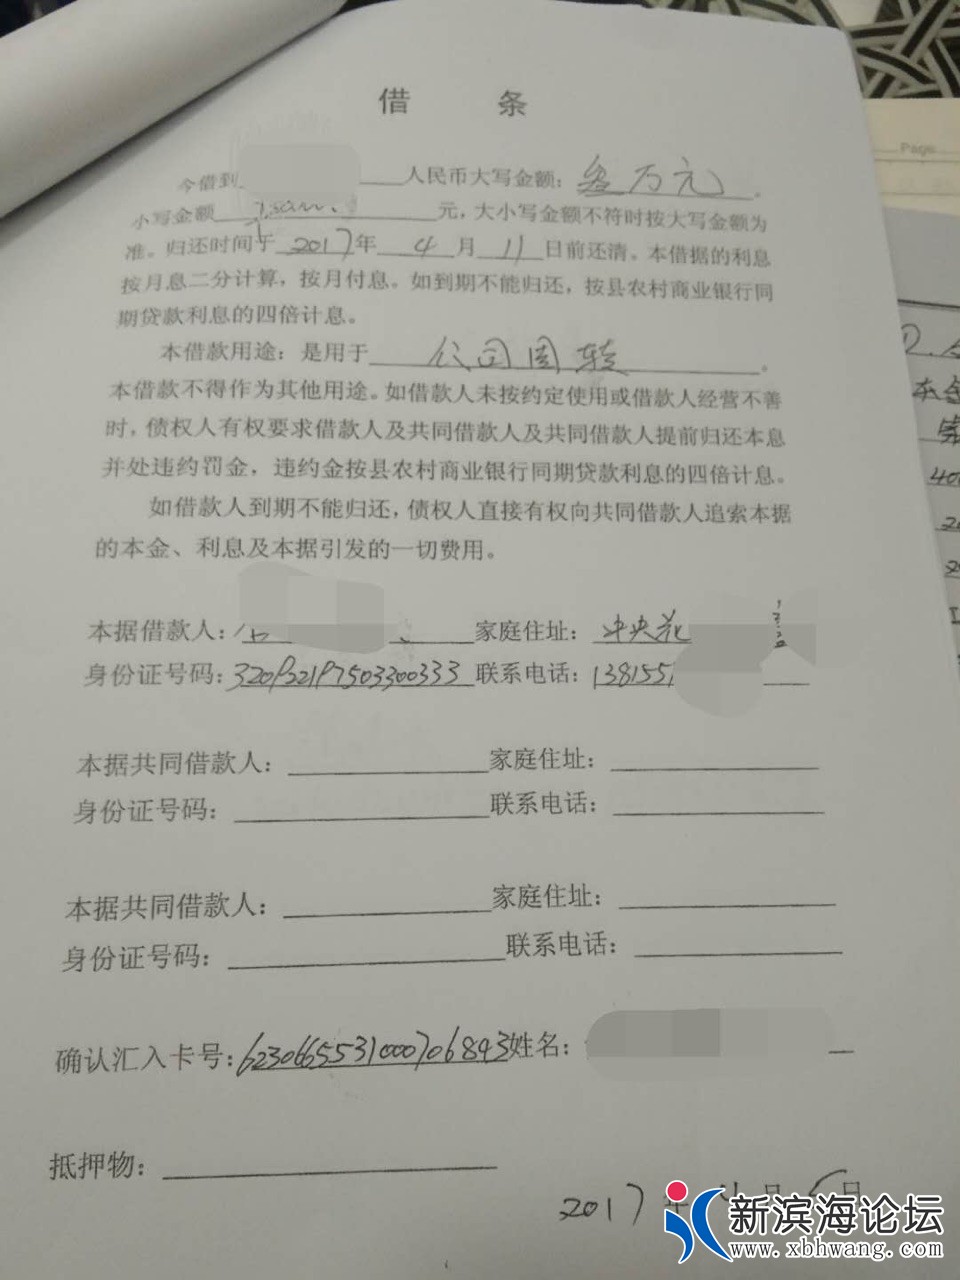 借 条
今借到 人民币大写金额：叁万元。
小写金额 元，大小写金额不符时按大写金额为
准。归还时间于 2017 年 4 月 11 日前还清。本借据的利息
按月息二分计算，按月付息。如到期不能归还，按县农村商业银行同
期贷款利息的四倍计息。
本借款用途：是用于 公司周转。
本借款不得作为其他用途。如借款人未按约定使用或借款人经营不善
时，债权人有权要求借款人及共同借款人及共同借款人提前归还本息
并处违约罚金，违约金按县农村商业银行同期贷款利息的四倍计息。
如借款人到期不能归还，债权人直接有权向共同借款人追索本据
的本金、利息及本据引发的一切费用。
本据借款人： 家庭住址：中央花
身份证号码：320922197503300333 联系电话：1381557
本据共同借款人： 家庭住址：
身份证号码： 联系电话：
本据共同借款人： 家庭住址：
身份证号码： 联系电话：
确认汇入卡号：6230665531000706893 姓名：
抵押物：
2017 年 月 日
Page
新滨海论坛
www.xbhwang.com